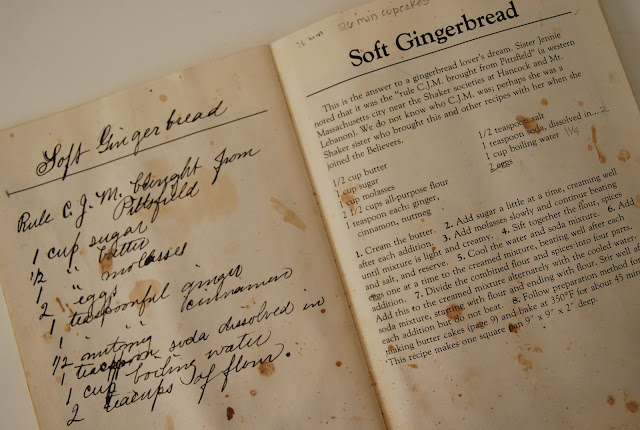 Soft Gingerbread
Rule C. J. M. brought from
Pittsfield
1 cup sugar
1/2 " butter
1 " molasses
2 eggs
1 teaspoonful ginger
1 " " cinnamon
1/2 nutmeg
1 teaspoon soda dissolved in
1 cup boiling water
2 teacups of flour.
26 min cupcakes
Soft Gingerbread
This is the answer to a gingerbread lover's dream. Sister Jennie
noted that it was the "rule C.J.M. brought from Pittsfield" (a western
Massachusetts city near the Shaker societies at Hancock and Mt.
Lebanon). We do not know who C.J.M. was; perhaps she was a
Shaker sister who brought this and other recipes with her when she
joined the Believers.
1/2 cup butter
1 cup sugar
1 cup molasses
2 1/2 cups all-purpose flour
1 teaspoon each: ginger,
cinnamon, nutmeg
1/2 teaspoon salt
1 teaspoon soda, dissolved in... 2
1 cup boiling water 1 1/4
2 eggs
1. Cream the butter. 2. Add sugar a little at a time, creaming well
after each addition. 3. Add molasses slowly and continue beating
until mixture is light and creamy. 4. Sift together the flour, spices
and salt, and reserve. 5. Cool the water and soda mixture. 6. Add
eggs one at a time to the creamed mixture, beating well after each
addition. 7. Divide the combined flour and spices into four parts.
Add this to the creamed mixture alternately with the cooled water-
soda mixture, starting with flour and ending with flour. Stir well after
each addition but do not beat. 8. Follow preparation method for
making butter cakes (page 9) and bake at 350°F for about 45 minutes.
This recipe makes one square pan 9" x 9" x 2" deep.